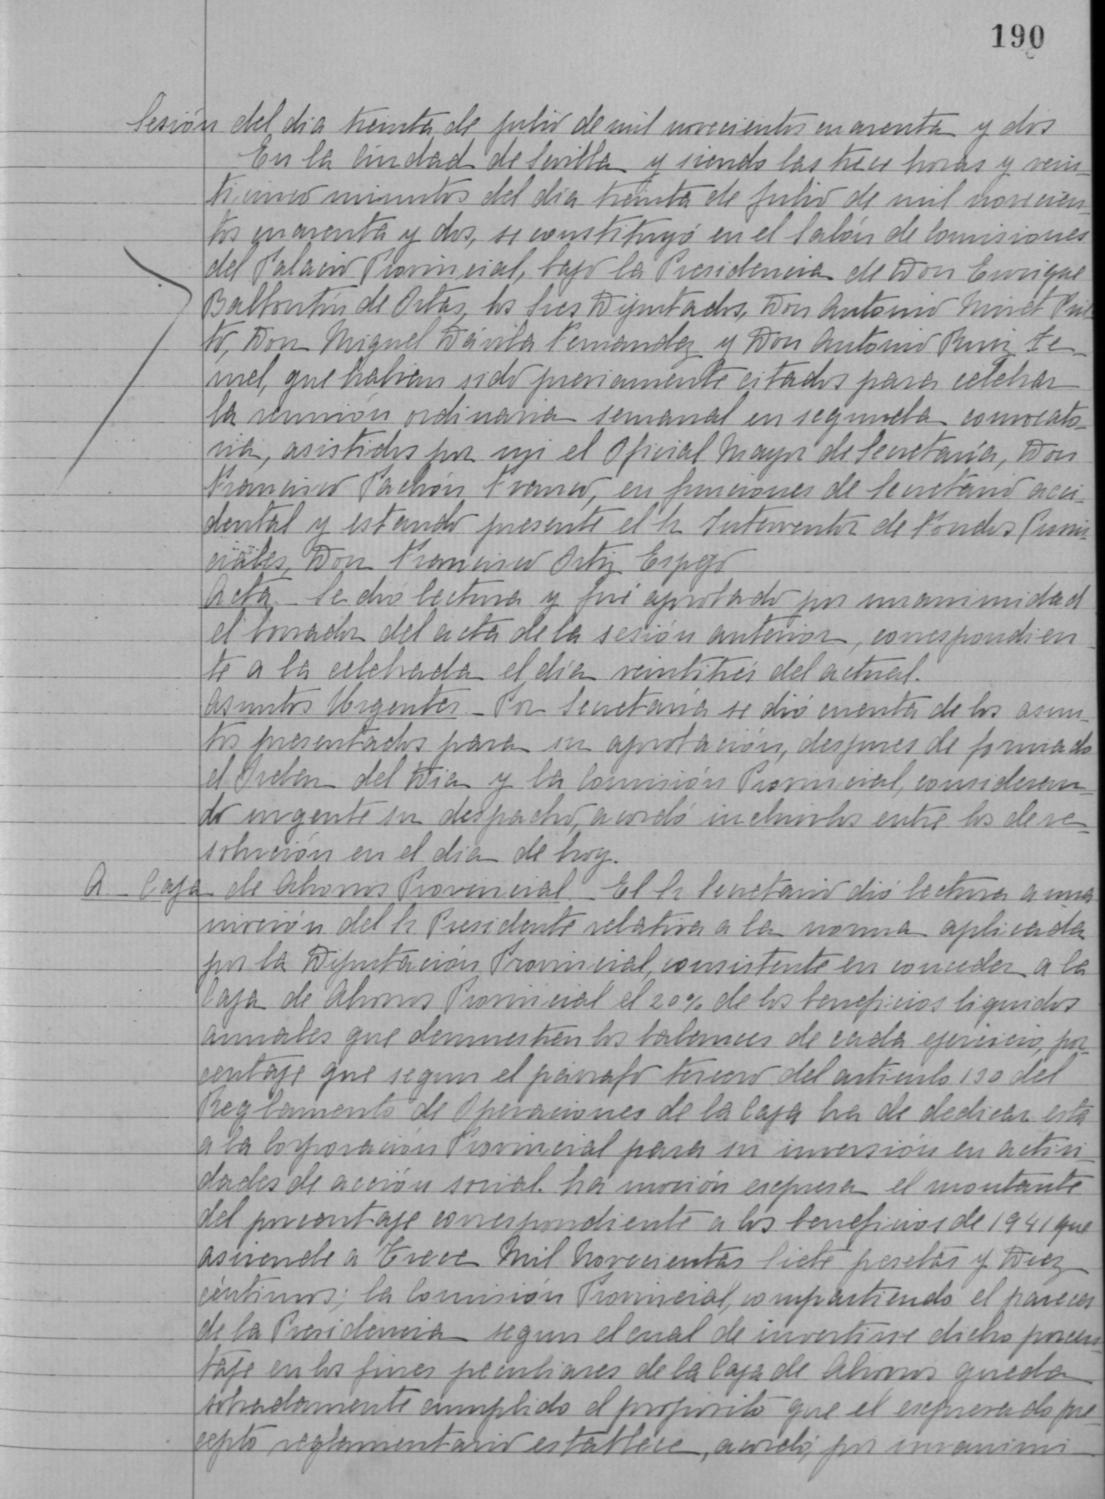 190
Sesión del dia treinta de julio de mil novecientos cuarenta y dos
En la Ciudad de Sevilla y siendo las trece horas y vein-
ticinco minutos del dia treinta de julio de mil novecien-
tos cuarenta y dos, se constituyó en el Salón de Comisiones
del Palacio Provincial, bajo la Presidencia de Don Enrique
Balbontín de Orta, los Sres Diputados, Don Antonio Miret
Don Miguel Dávila Fernandez y Don Antonio Ruiz Te-
rnel, que habian sido previamente citados para celebrar
la reunión ordinaria semanal en segunda convocato-
ria, asistidos por mi el Oficial Mayor de Secretaría, Don
Francisco Pachón Franco, en funciones de Secretario acci-
dental y estando presente el Sr Interventor de Fondos Provin-
ciales, Don Francisco Ortiz Espejo
Acta - Se dió lectura y fué aprobado por unanimidad
el borrador del acta de la sesión anterior, correspondien
te a la celebrada el día veintitres del actual.
Asuntos Urgentes - Por Secretaría se dió cuenta de los asun-
tos presentados para su aprobación, despues de formado
el Orden del Dia y la Comisión Provincial, consideran-
do urgente su despacho, acordó incluirlos entre los de re-
solución en el dia de hoy.
A - Caja de Ahorros Provincial - El Sr Secretario dió lectura a una
moción del Sr Presidente relativa a la norma aplicada
por la Diputación Provincial, consistente en conceder a la
Caja de Ahorros Provincial el 20% de los beneficios liquidos
anuales que demuestren los balances de cada ejercicio, por-
centaje que segun el párrafo tercero del articulo 130 del
Reglamento de Operaciones de la Caja ha de dedicar esta
a la Corporación Provincial para su inversión en activi-
dades de acción social. La moción expresa el montante
del porcentaje correspondiente a los beneficios de 1941 que
asciende a Trece Mil Novecientas Siete pesetas y Diez
céntimos; la Comisión Provincial, compartiendo el parecer
de la Presidencia segun el cual de invertirse dicho porcen-
taje en los fines peculiares de la Caja de Ahorros queda
sobradamente cumplido el proposito que el expresado pre-
cepto reglamentario establece, acordó, por unanimi-